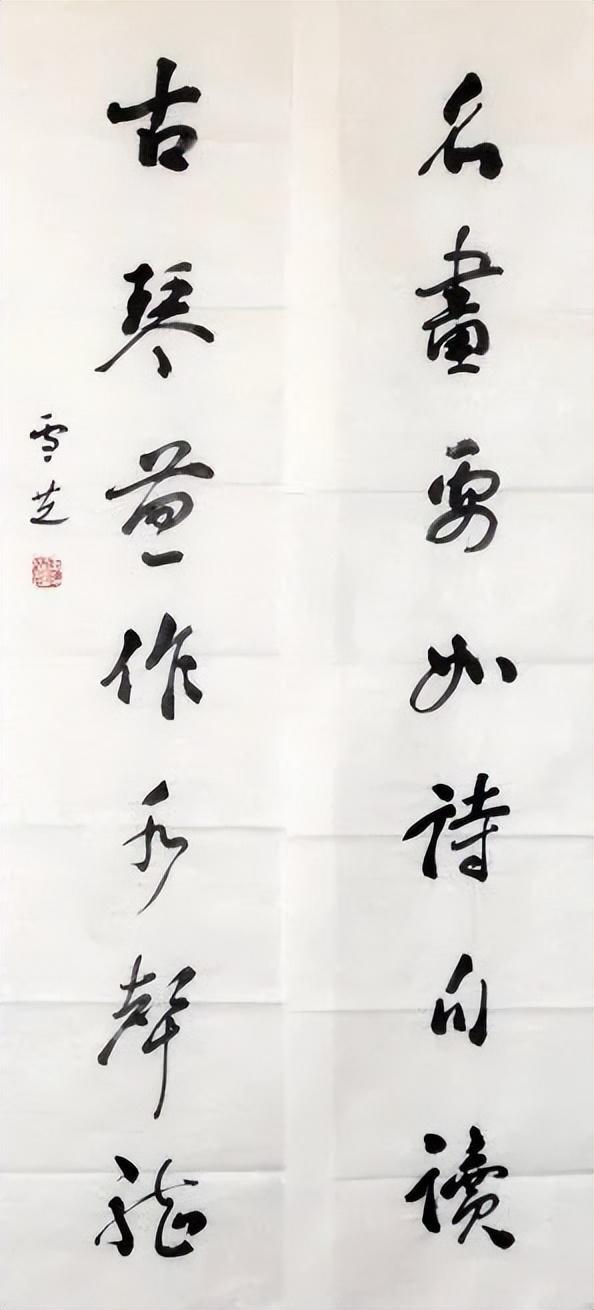 名畫要如詩句讀
古琴兼作水聲聽
雪芝